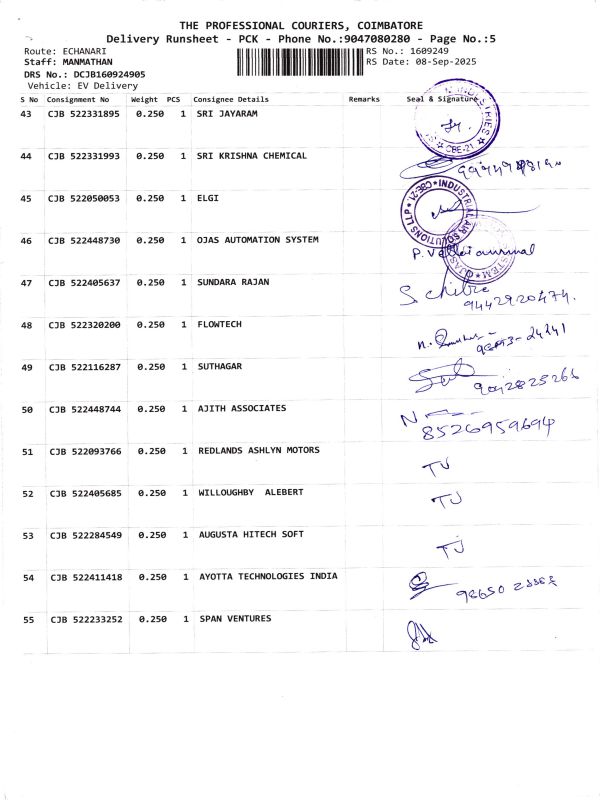 THE PROFESSIONAL COURIERS, COIMBATORE
Delivery Runsheet - PCK - Phone No.:9047080280 - Page No.:5
Route: ECHANARI
RS No.: 1609249
Staff: MANMATHAN
RS Date: 08-Sep-2025
DRS No.: DCJB160924905
Vehicle: EV Delivery
S No Consignment No Weight PCS Consignee Details Remarks Seal & Signature
43 CJB 522331895 0.250 1 SRI JAYARAM
CBE-21
44 CJB 522331993 0.250 1 SRI KRISHNA CHEMICAL
45 CJB 522050053 0.250 1 ELGI
INDUSTRIAL AIR SOLUTIONS LLP * CBE-21 *
46 CJB 522448730 0.250 1 OJAS AUTOMATION SYSTEM
47 CJB 522405637 0.250 1 SUNDARA RAJAN
9442920474.
48 CJB 522320200 0.250 1 FLOWTECH
49 CJB 522116287 0.250 1 SUTHAGAR
9042825265
50 CJB 522448744 0.250 1 AJITH ASSOCIATES
8526959694
51 CJB 522093766 0.250 1 REDLANDS ASHLYN MOTORS
TJ
52 CJB 522405685 0.250 1 WILLOUGHBY ALEBERT
TJ
53 CJB 522284549 0.250 1 AUGUSTA HITECH SOFT
TJ
54 CJB 522411418 0.250 1 AYOTTA TECHNOLOGIES INDIA
55 CJB 522233252 0.250 1 SPAN VENTURES